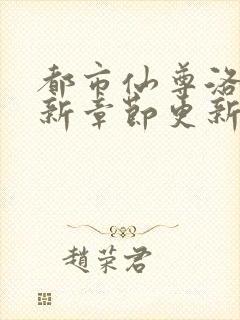 都市仙尊洛
新章節更新
趙荣君